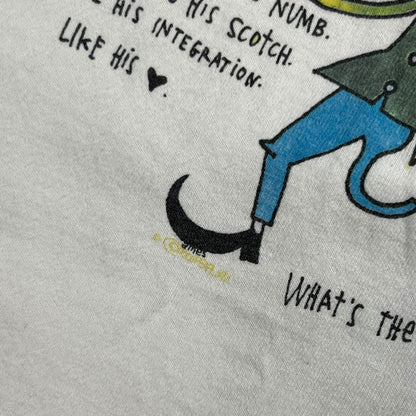 NUMB.
HIS SCOTCH.
HIS INTEGRATION.
LIKE HIS ♥.
ames
WHAT'S THE